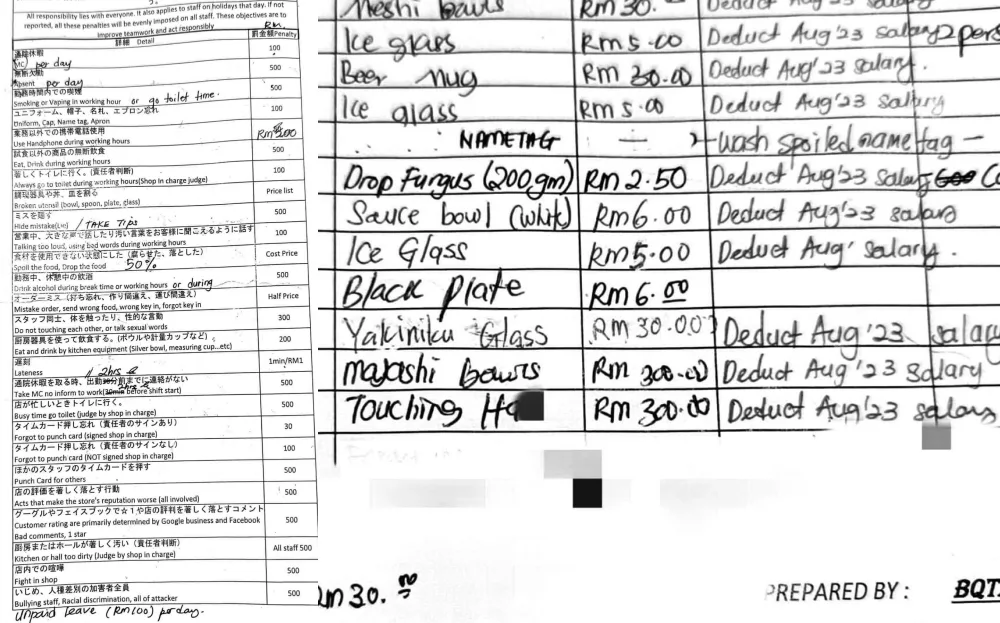 All responsibility lies with everyone. It also applies to staff on holidays that day. If not
reported, all these penalties will be evenly imposed on all staff. These objectives are to
improve teamwork and act responsibly
詳細 Detail
罰金額Penalty
Rm.
遅刻休暇
MC) per day
100
無断欠勤
Absent per day
500
勤務時間内での喫煙
Smoking or Vaping in working hour or go toilet time.
500
ユニフォーム、帽子、名札、エプロン忘れ
Uniform, Cap, Name tag, Apron
100
業務以外での携帯電話使用
Use Handphone during working hours
試食以外の商品の無断飲食
Eat, Drink during working hours
500
著しくトイレに行く。(責任者判断)
Always go to toilet during working hours(Shop in charge judge)
100
調理器具や丼、皿を割る
Broken utensil (bowl, spoon, plate, glass)
Price list
ミスを隠す
Hide mistake(Lie) / TAKE TIPS
500
営業中、大きな声で話したり汚い言葉をお客様に聞こえるように話す
Talking too loud, using bad words during working hours
100
食材を使用できない状態にした (腐らせた、落とした)
Spoil the food, Drop the food 50%
Cost Price
勤務中、休憩中の飲酒
Drink alcohol during break time or working hours or during
500
オーダーミス (打ち忘れ、作り間違え、運び間違え)
Mistake order, send wrong food, wrong key in, forgot key in
Half Price
スタッフ同士、体を触ったり、性的な言動
Do not touching each other, or talk sexual words
300
厨房器具を使って飲食する。(ボウルや計量カップなど)
Eat and drink by kitchen equipment (Silver bowl, measuring cup...etc)
200
遅刻
Lateness
1min/RM1
2hrs
遅刻休暇を取る時、出勤前までに連絡がない
Take MC no inform to work before shift start)
500
店が忙しいときトイレに行く。
Busy time go toilet (judge by shop in charge)
500
タイムカード押し忘れ (責任者のサインあり)
Forgot to punch card (signed shop in charge)
30
タイムカード押し忘れ (責任者のサインなし)
Forgot to punch card (NOT signed shop in charge)
100
ほかのスタッフのタイムカードを押す
Punch Card for others
500
店の評価を著しく落とす行動
Acts that make the store's reputation worse (all involved)
500
グーグルやフェイスブックで☆1や店の評判を著しく落とすコメント
Customer rating are primarily determined by Google business and Facebook
Bad comments, 1 star
500
厨房またはホールが著しく汚い (責任者判断)
Kitchen or hall too dirty (Judge by shop in charge)
All staff 500
店内での喧嘩
Fight in shop
500
いじめ、人種差別の加害者全員
Bullying staff, Racial discrimination, all of attacker
500
Unpaid leave (RM100) per day.
Meshi bowls Rm 30. Deduct Aug
Ice glass Rm 5.00 Deduct Aug'23 salary 2 pers
Beer mug Rm 30.00 Deduct Aug'23 salary.
Ice glass Rm 5.00 Deduct Aug'23 salary
NAMETAG — Wash spoiled name tag
Drop Fungus (200gm) RM 2.50 Deduct Aug'23 salary
Sauce bowl (white) RM6.00 Deduct Aug'23 salary
Ice Glass RM5.00 Deduct Aug' salary.
Black plate RM 6.00
Yakiniku Glass RM 30.00 Deduct Aug '23 salary
mayashi bowls RM 300.00 Deduct Aug'23 salary
Touching RM 300.00 Deduct Aug'23 salary
Rm 30.00
PREPARED BY : BQT